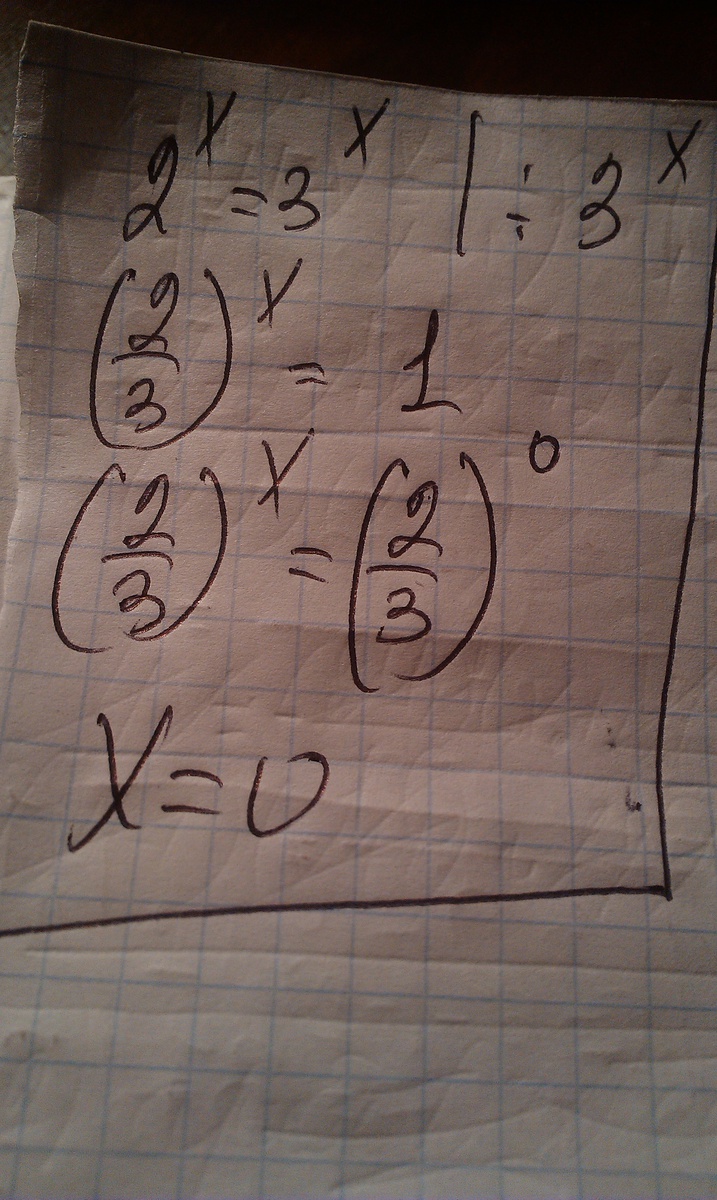 2^x = 3^x | ÷ 3^x
(2/3)^x = 1
(2/3)^x = (2/3)^0
x = 0